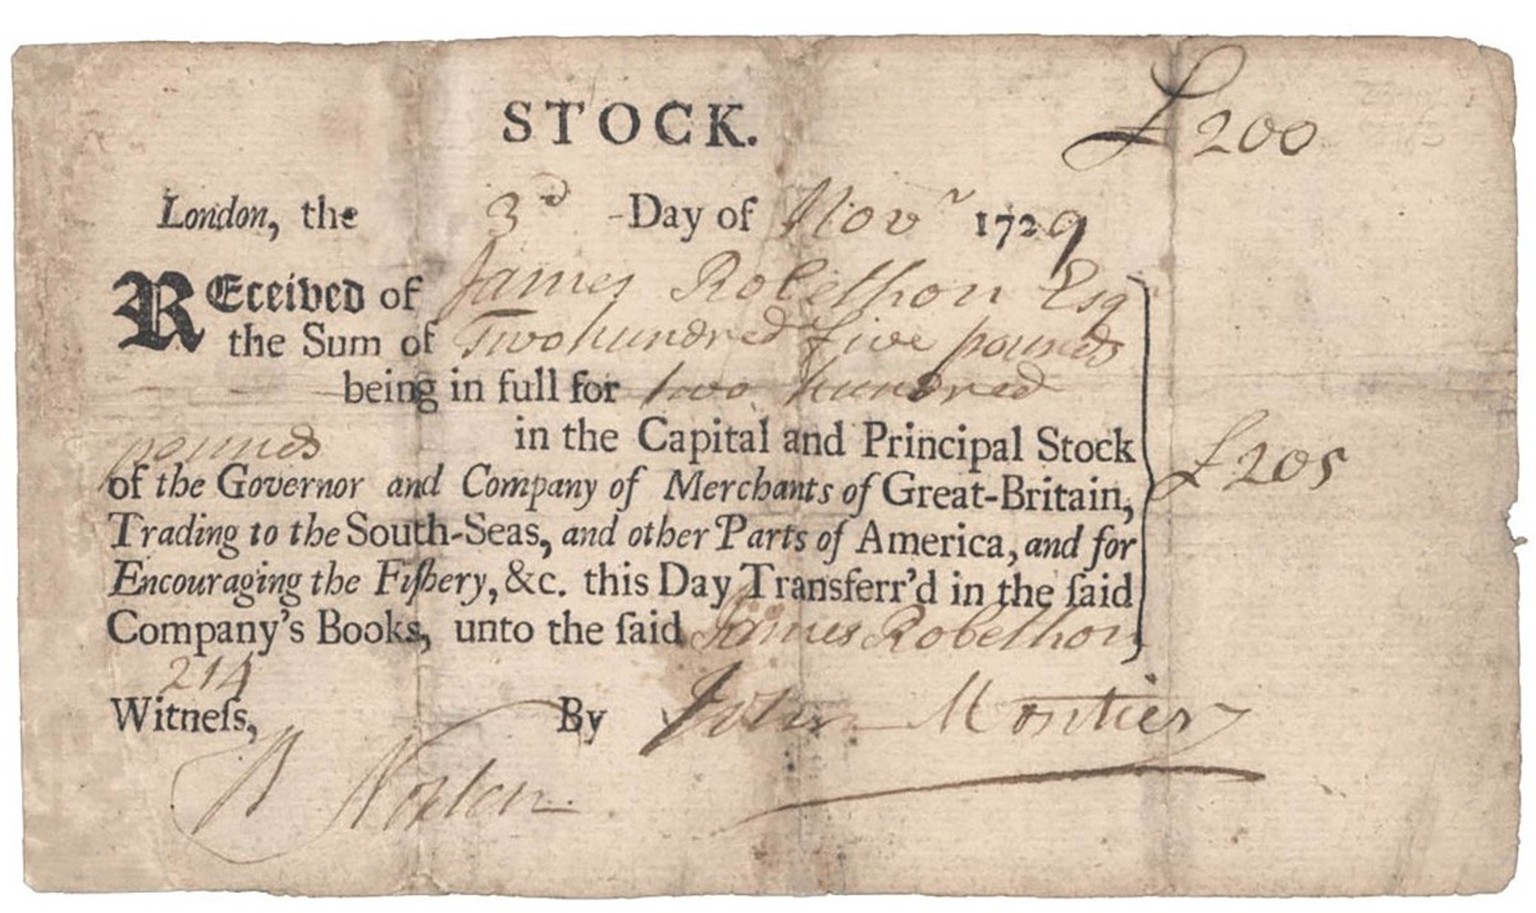 STOCK. £200
London, the 3d Day of Novr 1729
REceived of James Robethon Esq
the Sum of Two hundred five pounds
being in full for two hundred
pounds in the Capital and Principal Stock
of the Governor and Company of Merchants of Great-Britain, £205
Trading to the South-Seas, and other Parts of America, and for
Encouraging the Fiſhery, &c. this Day Transferr'd in the ſaid
Company's Books, unto the ſaid James Robethon
214
Witneſs, By John Montier
Norton